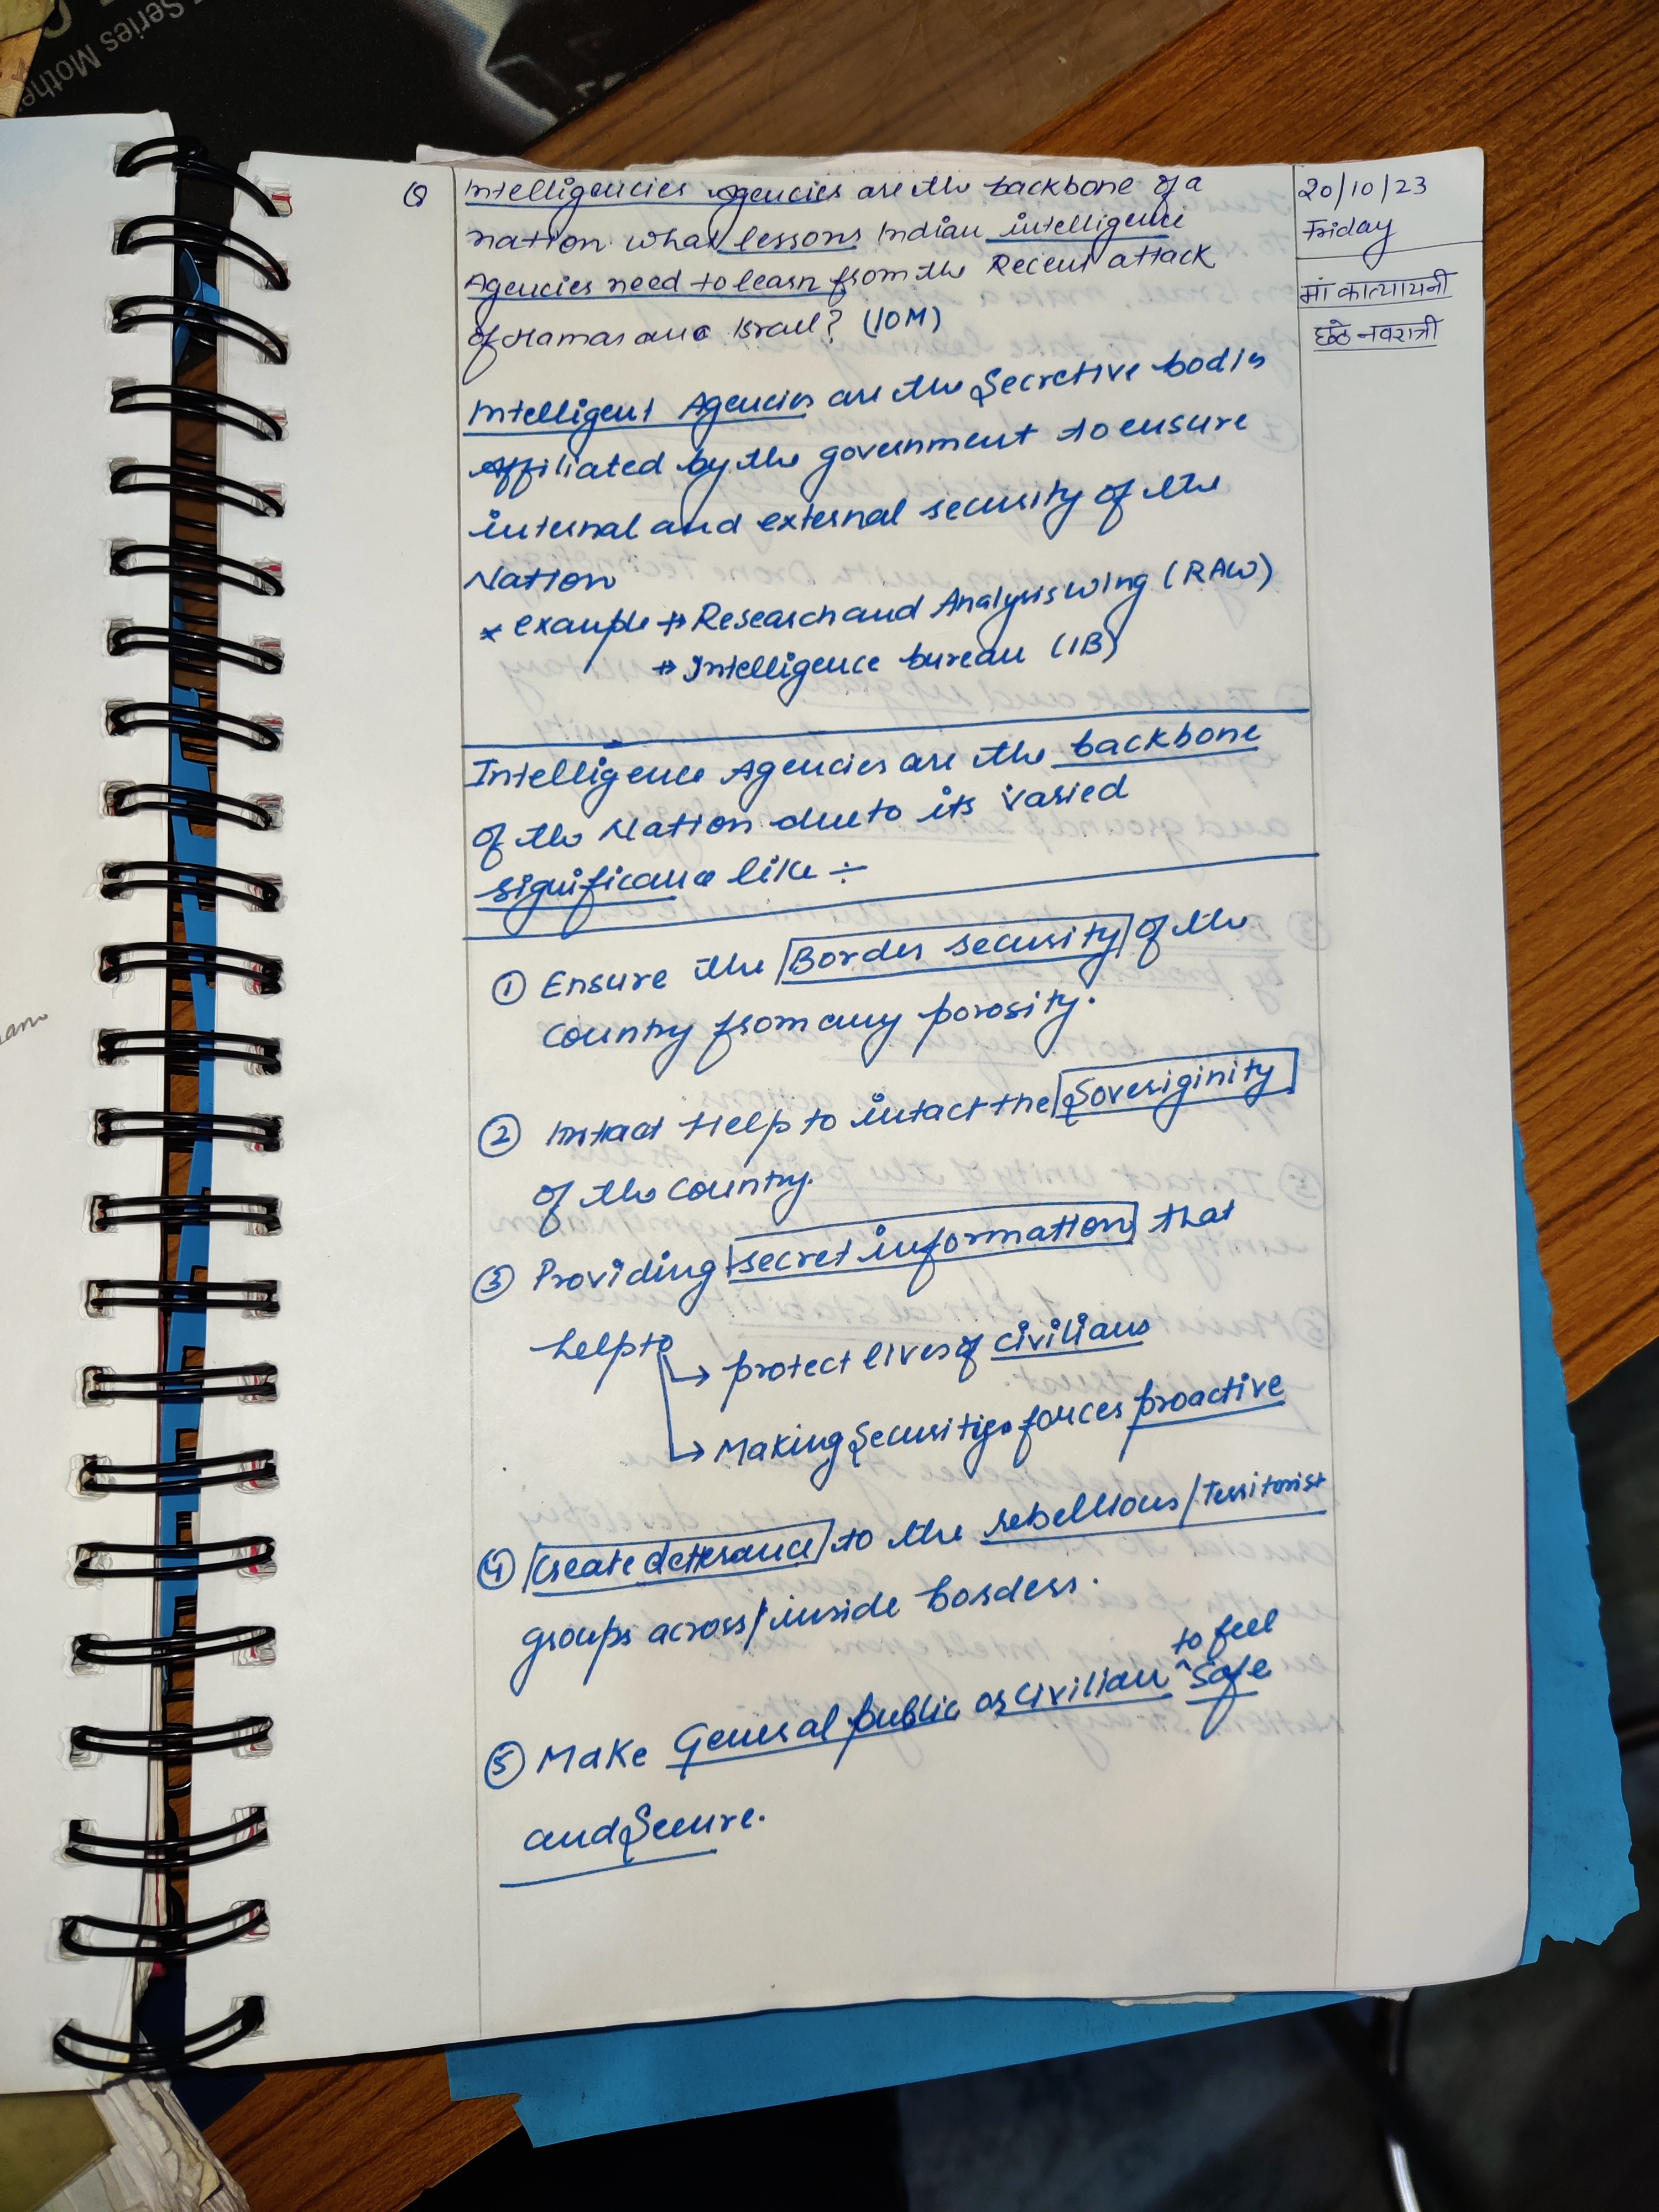 Series Mothe
Q Intelligencies Agencies are the backbone of a
nation. what lessons Indian intelligence
Agencies need to learn from the Recent attack
of Hamas and Israel? (10M)
20/10/23
Friday
मां कात्यायनी
छठे नवरात्री
Intelligent Agencies are the Secretive bodies
affiliated by the government to ensure
internal and external security of the
Nation
* example → Research and Analysis wing (RAW)
→ Intelligence bureau (IB)
Intelligence Agencies are the backbone
of the Nation due to its varied
significance like ÷
① Ensure the Border security of the
country from any porosity.
② Help to intact the Soveriginity
of the country.
③ Providing secret information that
help to
→ protect lives of civilians
→ Making Security forces proactive
④ Create deterance to the rebellious / Territorist
groups across / inside borders.
to feel
⑤ Make General public or civilian ^ safe
and Secure.